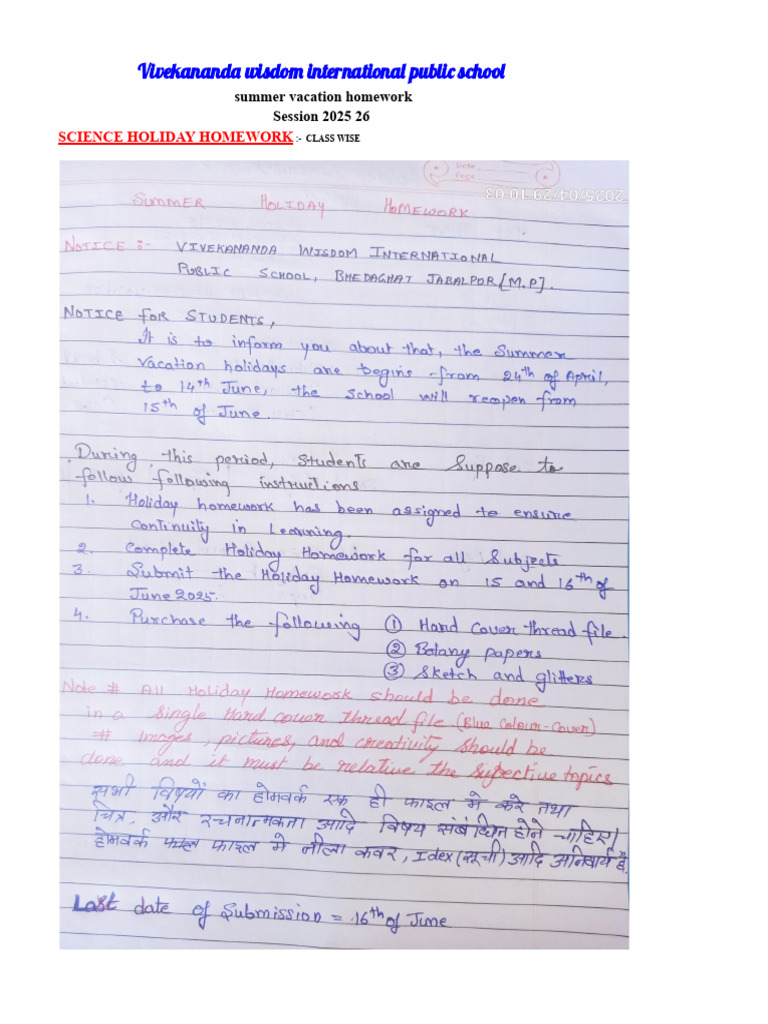 Vivekananda wisdom international public school
summer vacation homework
Session 2025 26
SCIENCE HOLIDAY HOMEWORK :- CLASS WISE
Date
Page
2025/04/29 10:03
SUMMER HOLIDAY HOMEWORK
NOTICE :- VIVEKANANDA WISDOM INTERNATIONAL
PUBLIC SCHOOL, BHEDAGHAT JABALPUR [M.P].
NOTICE FOR STUDENTS,
It is to inform you about that, the Summer
Vacation holidays are begins from 24th of April,
to 14th June, the School will reopen from
15th of June.
During this period, Students are Suppose to
follow following instructions
1. Holiday homework has been assigned to ensure
Continuity in Learning.
2. Complete Holiday Homework for all Subjects
3. Submit the Holiday Homework on 15 and 16th of
June 2025.
4. Purchase the following ① Hard Cover thread file.
② Botany papers
③ Sketch and glitters
Note # All Holiday Homework should be done
in a Single Hard cover thread file (Blue Colour-Cover)
# Images, pictures, and creativity should be
done and it must be relative the supective topics
सभी विषयों का होमवर्क एक ही फाइल मे करे तथा
चित्र, और रचनात्मकता आदि विषय संबंधित होने चाहिए।
होमवर्क फाइल मे नीला कवर, Idex (सूची) आदि अनिवार्य है.
Last date of Submission = 16th of June